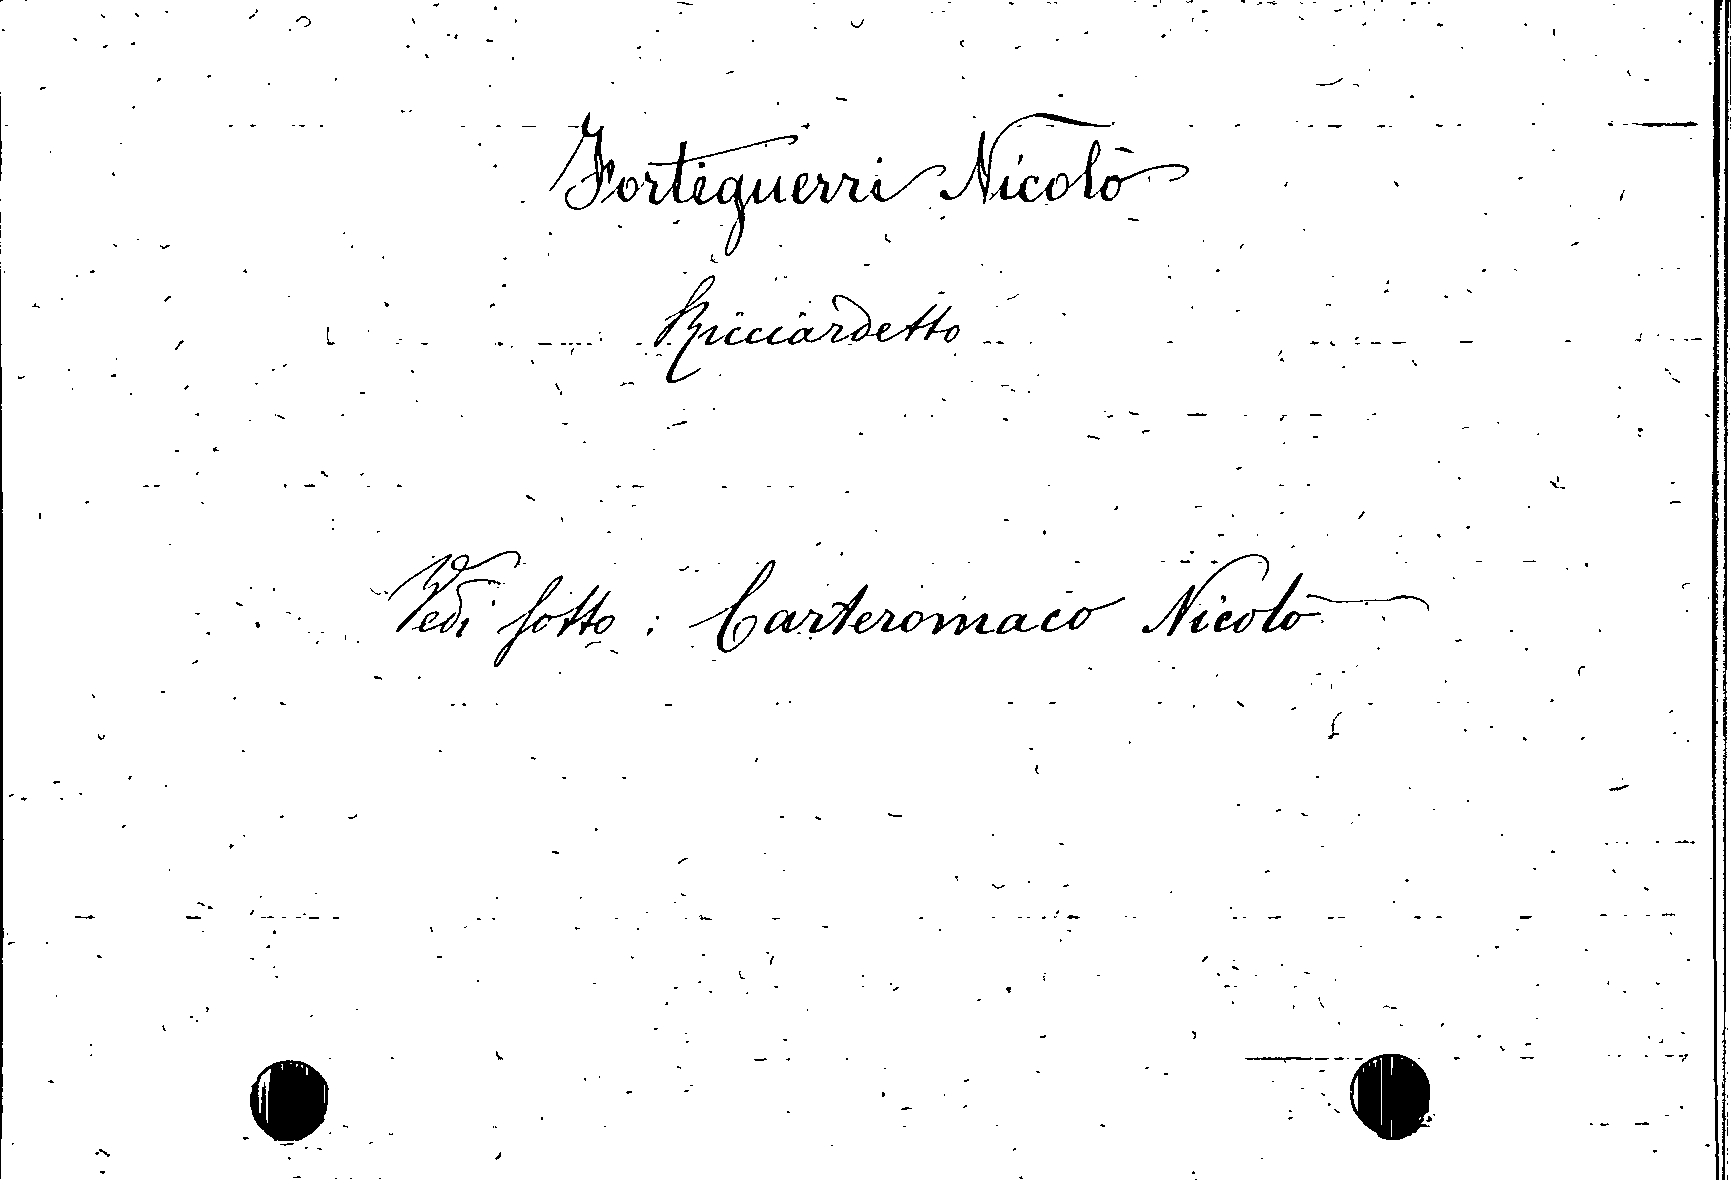 Forteguerri Nicolò
Ricciardetto
Vedi sotto : Carteromaco Nicolò